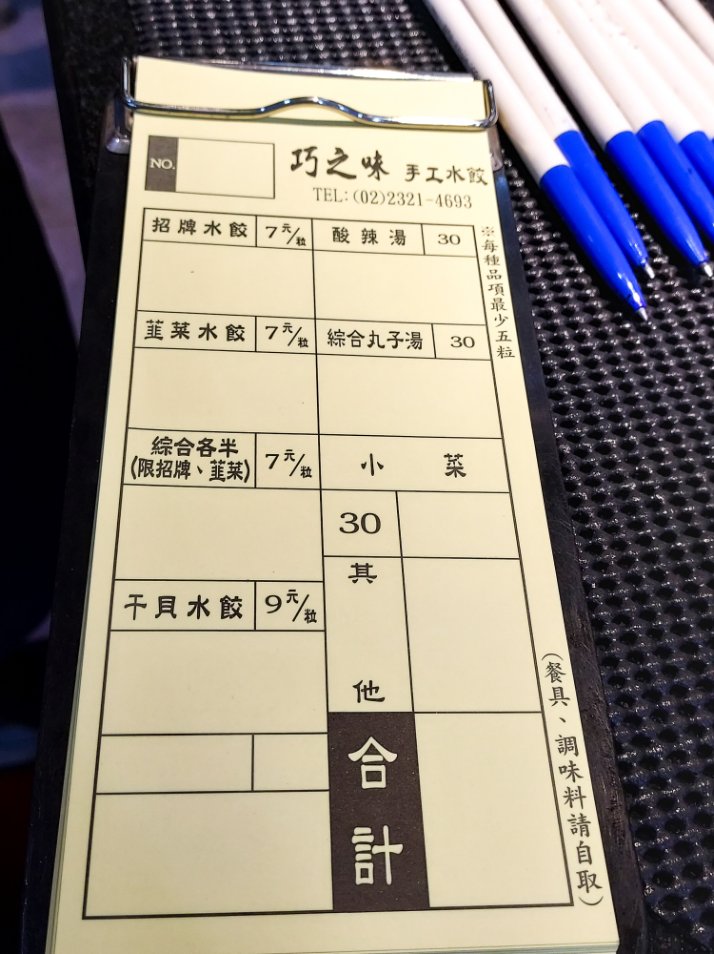 NO.
巧之味 手工水餃
TEL:(02)2321-4693
招牌水餃 7元/粒
酸辣湯 30
韮菜水餃 7元/粒
綜合丸子湯 30
綜合各半 7元/粒
(限招牌、韮菜)
小菜
30
干貝水餃 9元/粒
其他
合計
※每種品項最少五粒
(餐具、調味料請自取)